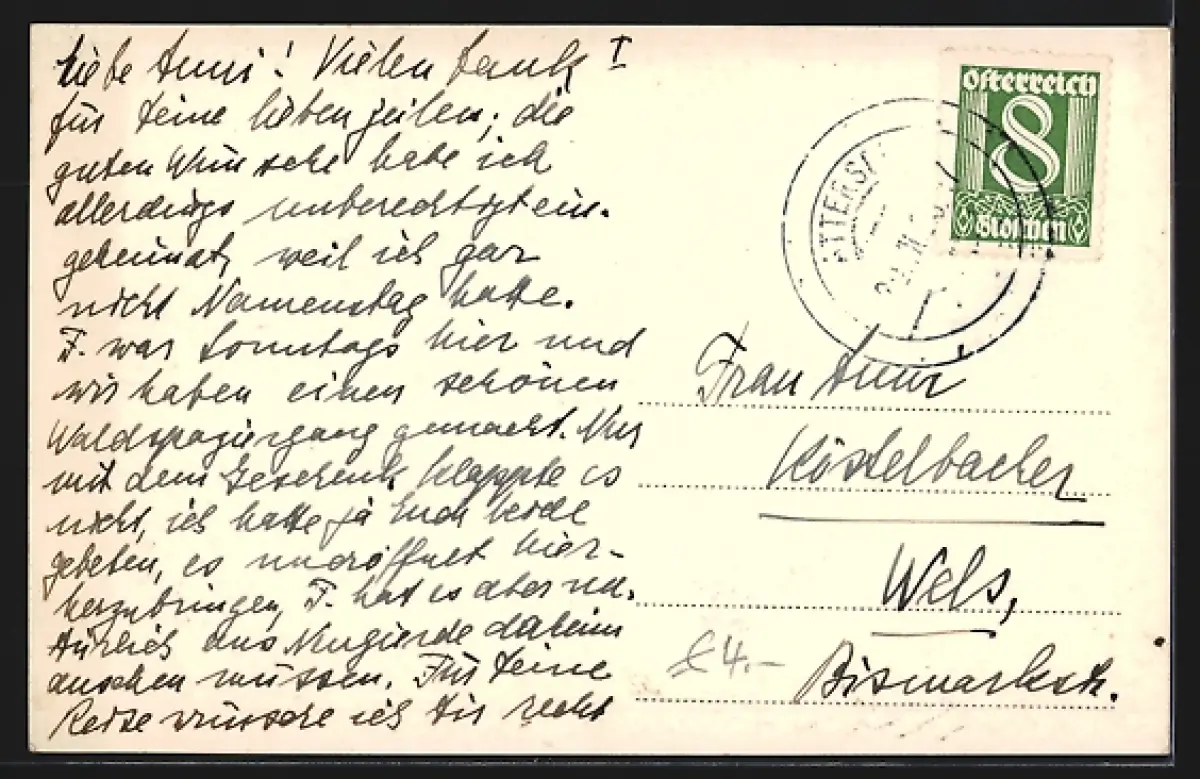 Liebe Anni! Vielen Dank I
für Deine lieben Zeilen; die
guten Wünsche habe ich
allerdings unberechtigt ein-
geheimst, weil ich gar
nicht Namenstag hatte.
F. war Sonntags hier und
wir haben einen schönen
Waldspaziergang gemacht. Nur
mit dem Geschenk klappte es
nicht, ich hatte ja Euch beide
gebeten, es uneröffnet hier-
herzubringen, F. hat es aber na-
türlich aus Neugierde daheim
ansehen müssen. Für Deine
Reise wünsche ich Dir recht
Österreich
8
Groschen
Frau Anni
Köstelbacher
Wels,
Bismarckstr.
£4.-